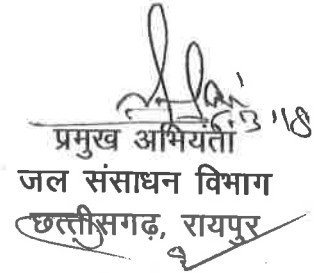 6.3'18
प्रमुख अभियंता
जल संसाधन विभाग
छत्तीसगढ़, रायपुर